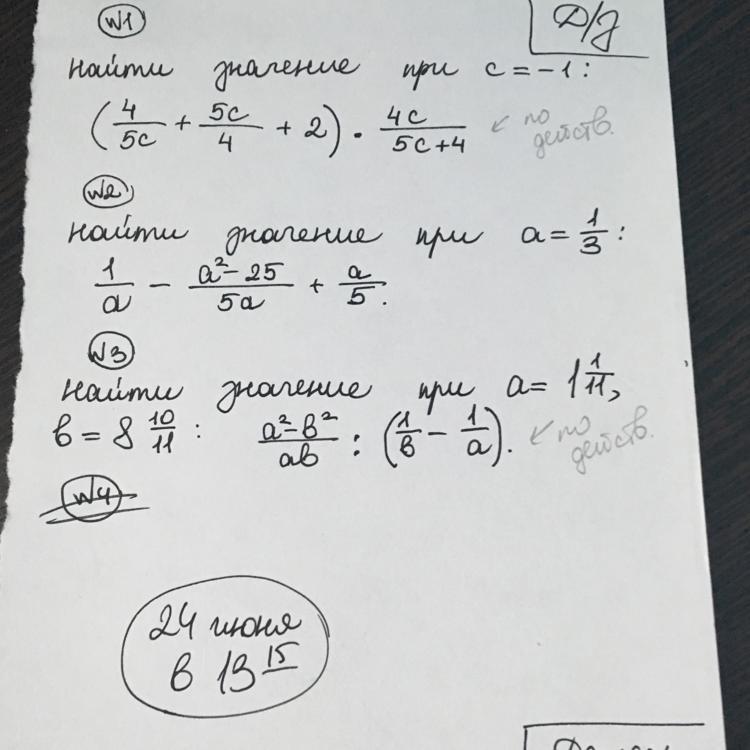 Д/З
№1
Найти значение при c = -1:
(4/5c + 5c/4 + 2) · 4c/5c+4 ← по действ.
№2
Найти значение при a = 1/3:
1/a - a²-25/5a + a/5.
№3
Найти значение при a = 1 1/11,
b = 8 10/11: a²-b²/ab : (1/b - 1/a). ← по действ.
№4
24 июня
в 13 15